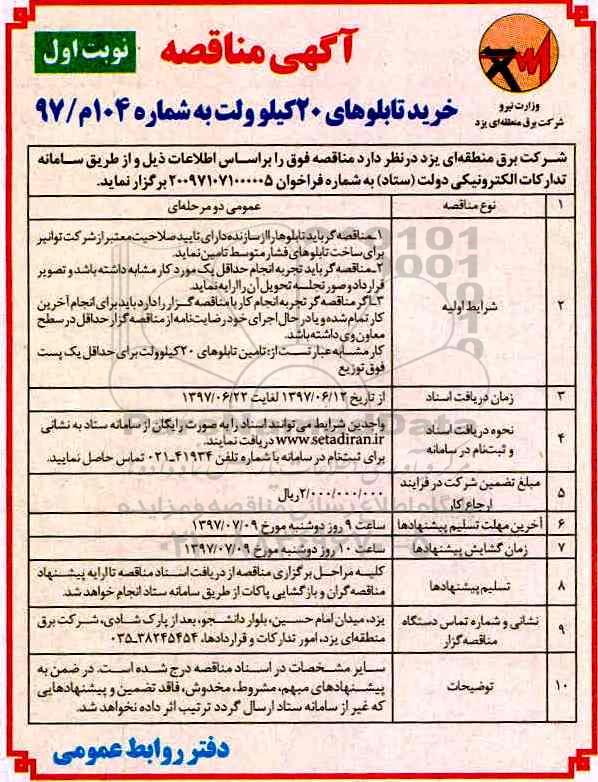 آگهی مناقصه
نوبت اول
وزارت نیرو
شرکت برق منطقه‌ای یزد
خرید تابلوهای ۲۰کیلو ولت به شماره ۱۰۴م/۹۷
شرکت برق منطقه‌ای یزد درنظر دارد مناقصه فوق را براساس اطلاعات ذیل و از طریق سامانه
تدارکات الکترونیکی دولت (ستاد) به شماره فراخوان ۲۰۰۹۷۱۰۷۱۰۰۰۰۰۵ برگزار نماید.
۱ نوع مناقصه عمومی دو مرحله‌ای
۲ شرایط اولیه
۱ـ مناقصه‌گر باید تابلوها را از سازنده دارای تایید صلاحیت معتبر از شرکت توانیر
برای ساخت تابلوهای فشار متوسط تامین نماید.
۲ـ مناقصه گر باید تجربه انجام حداقل یک مورد کار مشابه داشته باشد و تصویر
قرارداد و صورتجلسه تحویل آن را ارایه نماید.
۳ـ اگر مناقصه گر تجربه انجام کار با مناقصه گزار را دارد باید برای انجام آخرین
کار تمام شده و یا در حال اجرای خود رضایت‌نامه از مناقصه گزار حداقل در سطح
معاون وی داشته باشد.
کار مشابه عبارتست از: تامین تابلوهای ۲۰کیلوولت برای حداقل یک پست
فوق توزیع
۳ زمان دریافت اسناد از تاریخ ۱۳۹۷/۰۶/۱۲ لغایت ۱۳۹۷/۰۶/۲۲
۴ نحوه دریافت اسناد
و ثبت‌نام در سامانه
واجدین شرایط می توانند اسناد را به صورت رایگان از سامانه ستاد به نشانی
www.setadiran.ir دریافت نمایند.
برای ثبت‌نام در سامانه با شماره تلفن ۴۱۹۳۴-۰۲۱ تماس حاصل نمایید.
۵ مبلغ تضمین شرکت در فرایند
ارجاع کار
۲/۰۰۰/۰۰۰/۰۰۰ریال
۶ آخرین مهلت تسلیم پیشنهادها ساعت ۹ روز دوشنبه مورخ ۱۳۹۷/۰۷/۰۹
۷ زمان گشایش پیشنهادها ساعت ۱۰ روز دوشنبه مورخ ۱۳۹۷/۰۷/۰۹
۸ تسلیم پیشنهادها
کلیه مراحل برگزاری مناقصه از دریافت اسناد مناقصه تا ارایه پیشنهاد
مناقصه‌گران و بازگشایی پاکات از طریق سامانه ستاد انجام خواهد شد.
۹ نشانی و شماره تماس دستگاه
مناقصه‌گزار
یزد، میدان امام حسین، بلوار دانشجو، بعد از پارک شادی، شرکت برق
منطقه‌ای یزد، امور تدارکات و قراردادها، ۳۸۲۴۵۴۵۴-۰۳۵
۱۰ توضیحات
سایر مشخصات در اسناد مناقصه درج شده است. در ضمن به
پیشنهادهای مبهم، مشروط، مخدوش، فاقد تضمین و پیشنهادهایی
که غیر از سامانه ستاد ارسال گردد ترتیب اثر داده نخواهد شد.
دفتر روابط عمومی